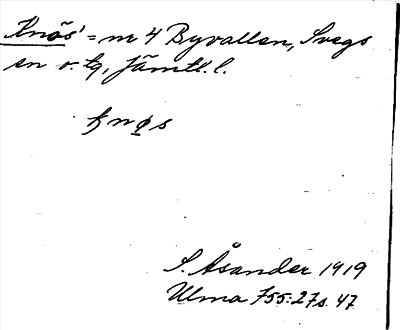 Knös' = nr 4 Byvallen, Svegs
sn o. tg, Jämtl. l.
S. Åsander 1919
Ulma 755:27 s. 47